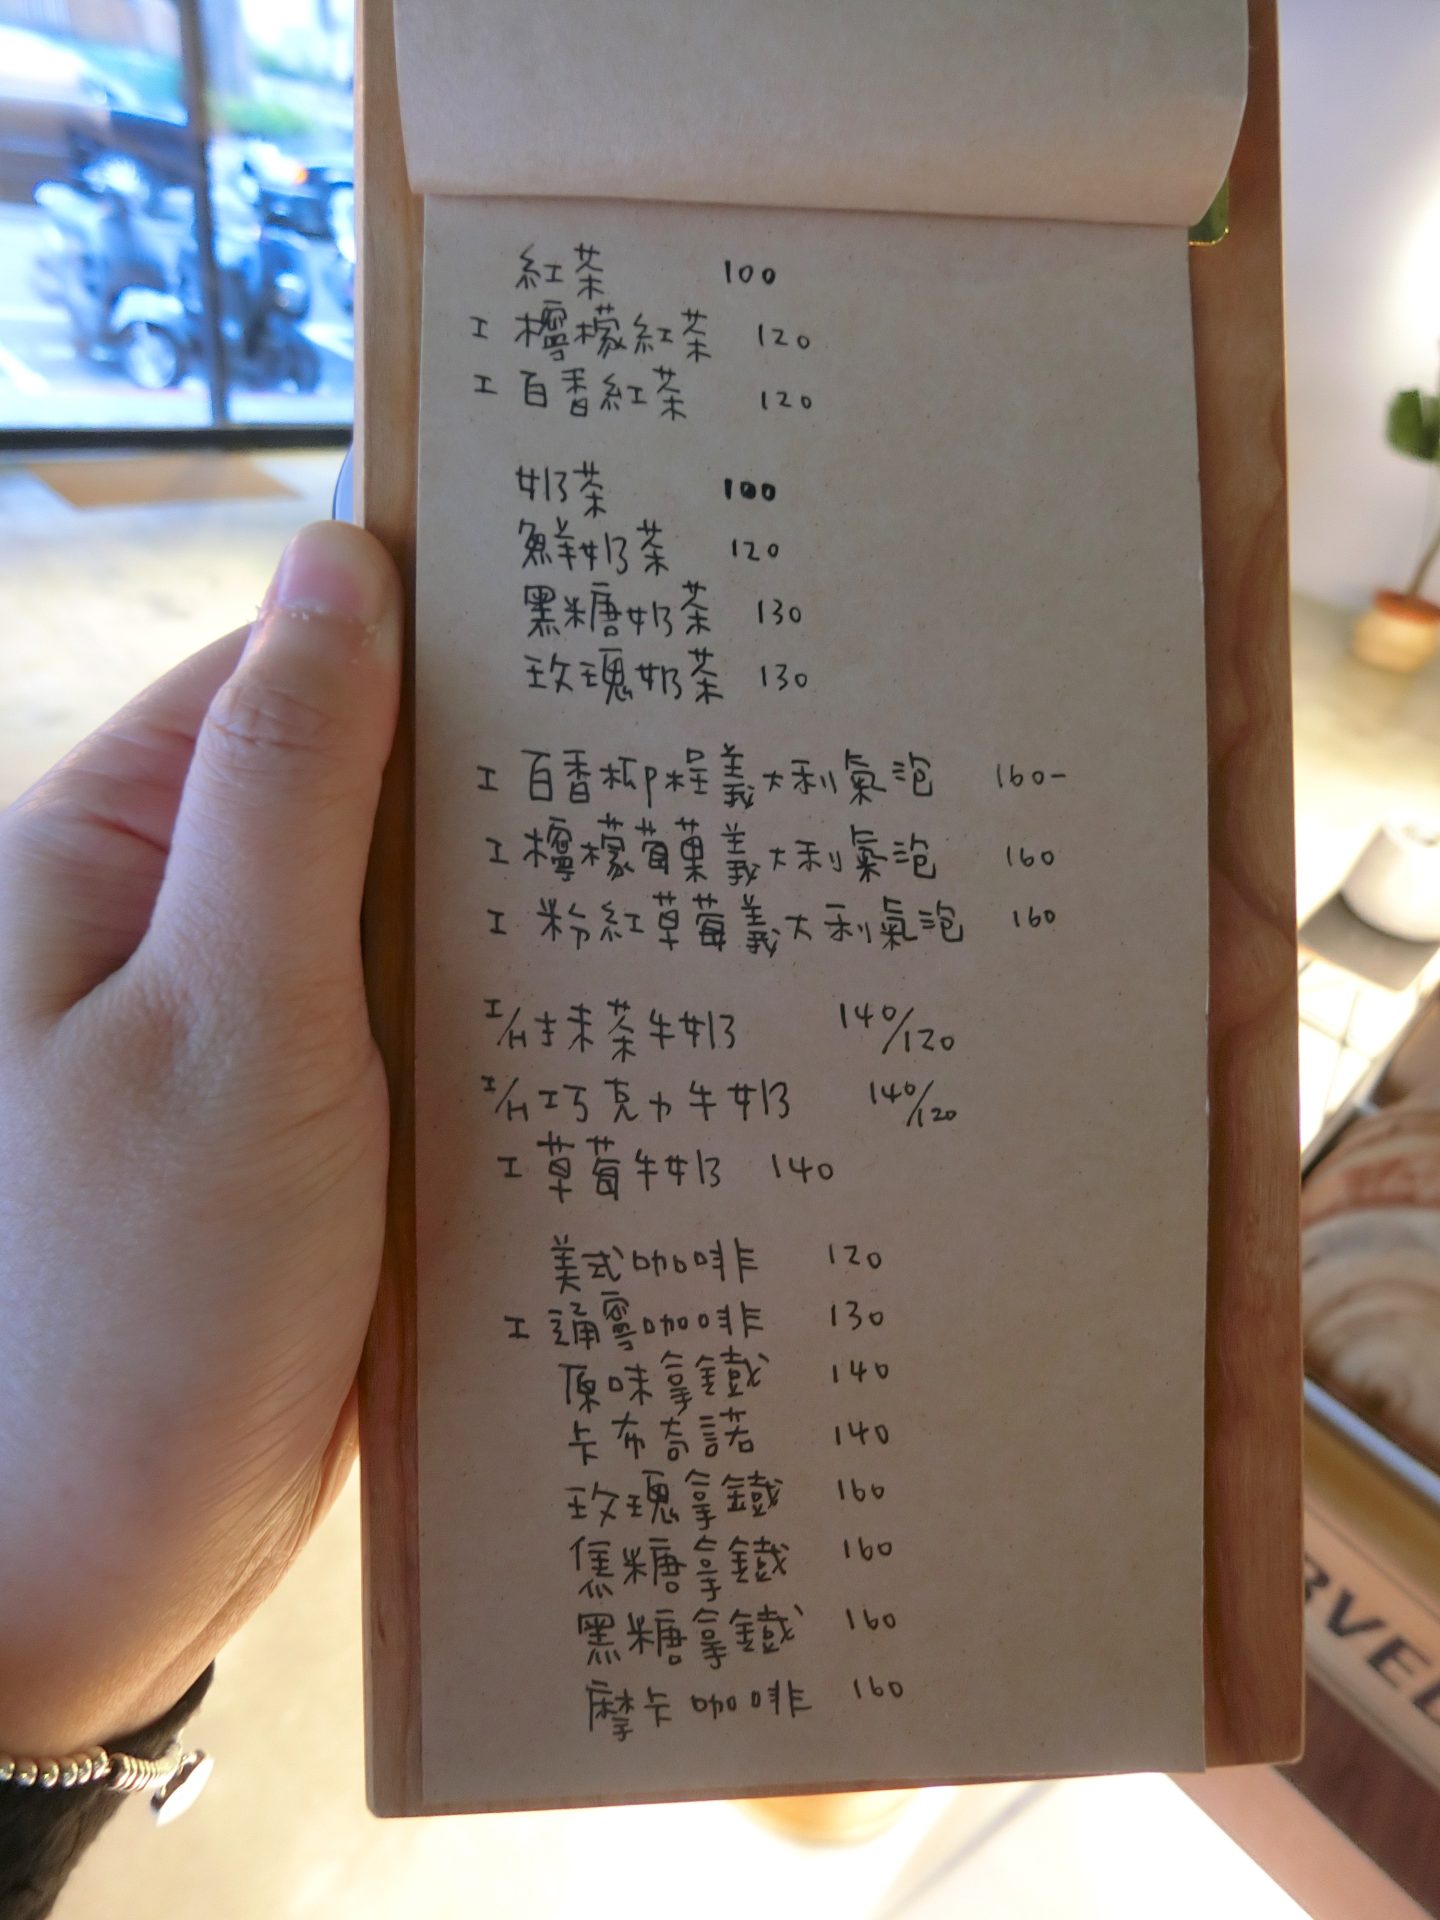 紅茶 100
I 檸檬紅茶 120
I 百香紅茶 120
奶茶 100
鮮奶茶 120
黑糖奶茶 130
玫瑰奶茶 130
I 百香柳橙義大利氣泡 160-
I 檸檬莓菓義大利氣泡 160
I 粉紅草莓義大利氣泡 160
I/H 抹茶牛奶 140/120
I/H 巧克力牛奶 140/120
I 草莓牛奶 140
美式咖啡 120
I 通寧咖啡 130
原味拿鐵 140
卡布奇諾 140
玫瑰拿鐵 160
焦糖拿鐵 160
黑糖拿鐵 160
摩卡咖啡 160